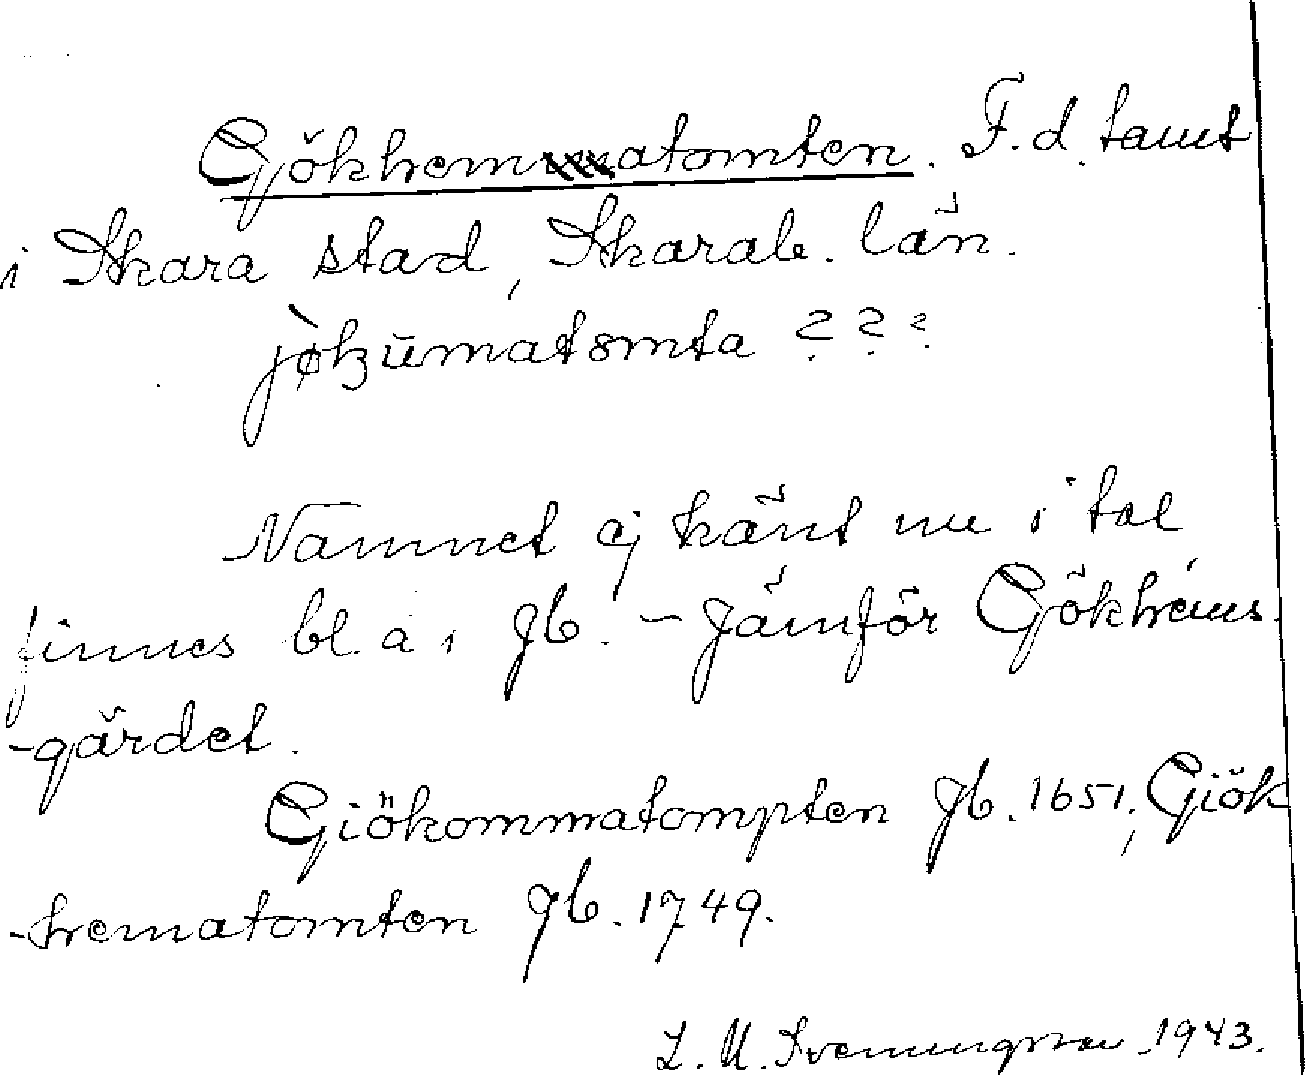 Gökhematomten. F.d. tomt
i Skara stad, Skarab. län.
jø̀kūmatomta ???
Namnet ej känt nu i tal
finnes bl. a. i Jb. – Jämför Gökhems-
-gärdet.
Giökommatompten Jb. 1651, Giök-
-hematomten Jb. 1749.
L. M. Svenungsson 1943.